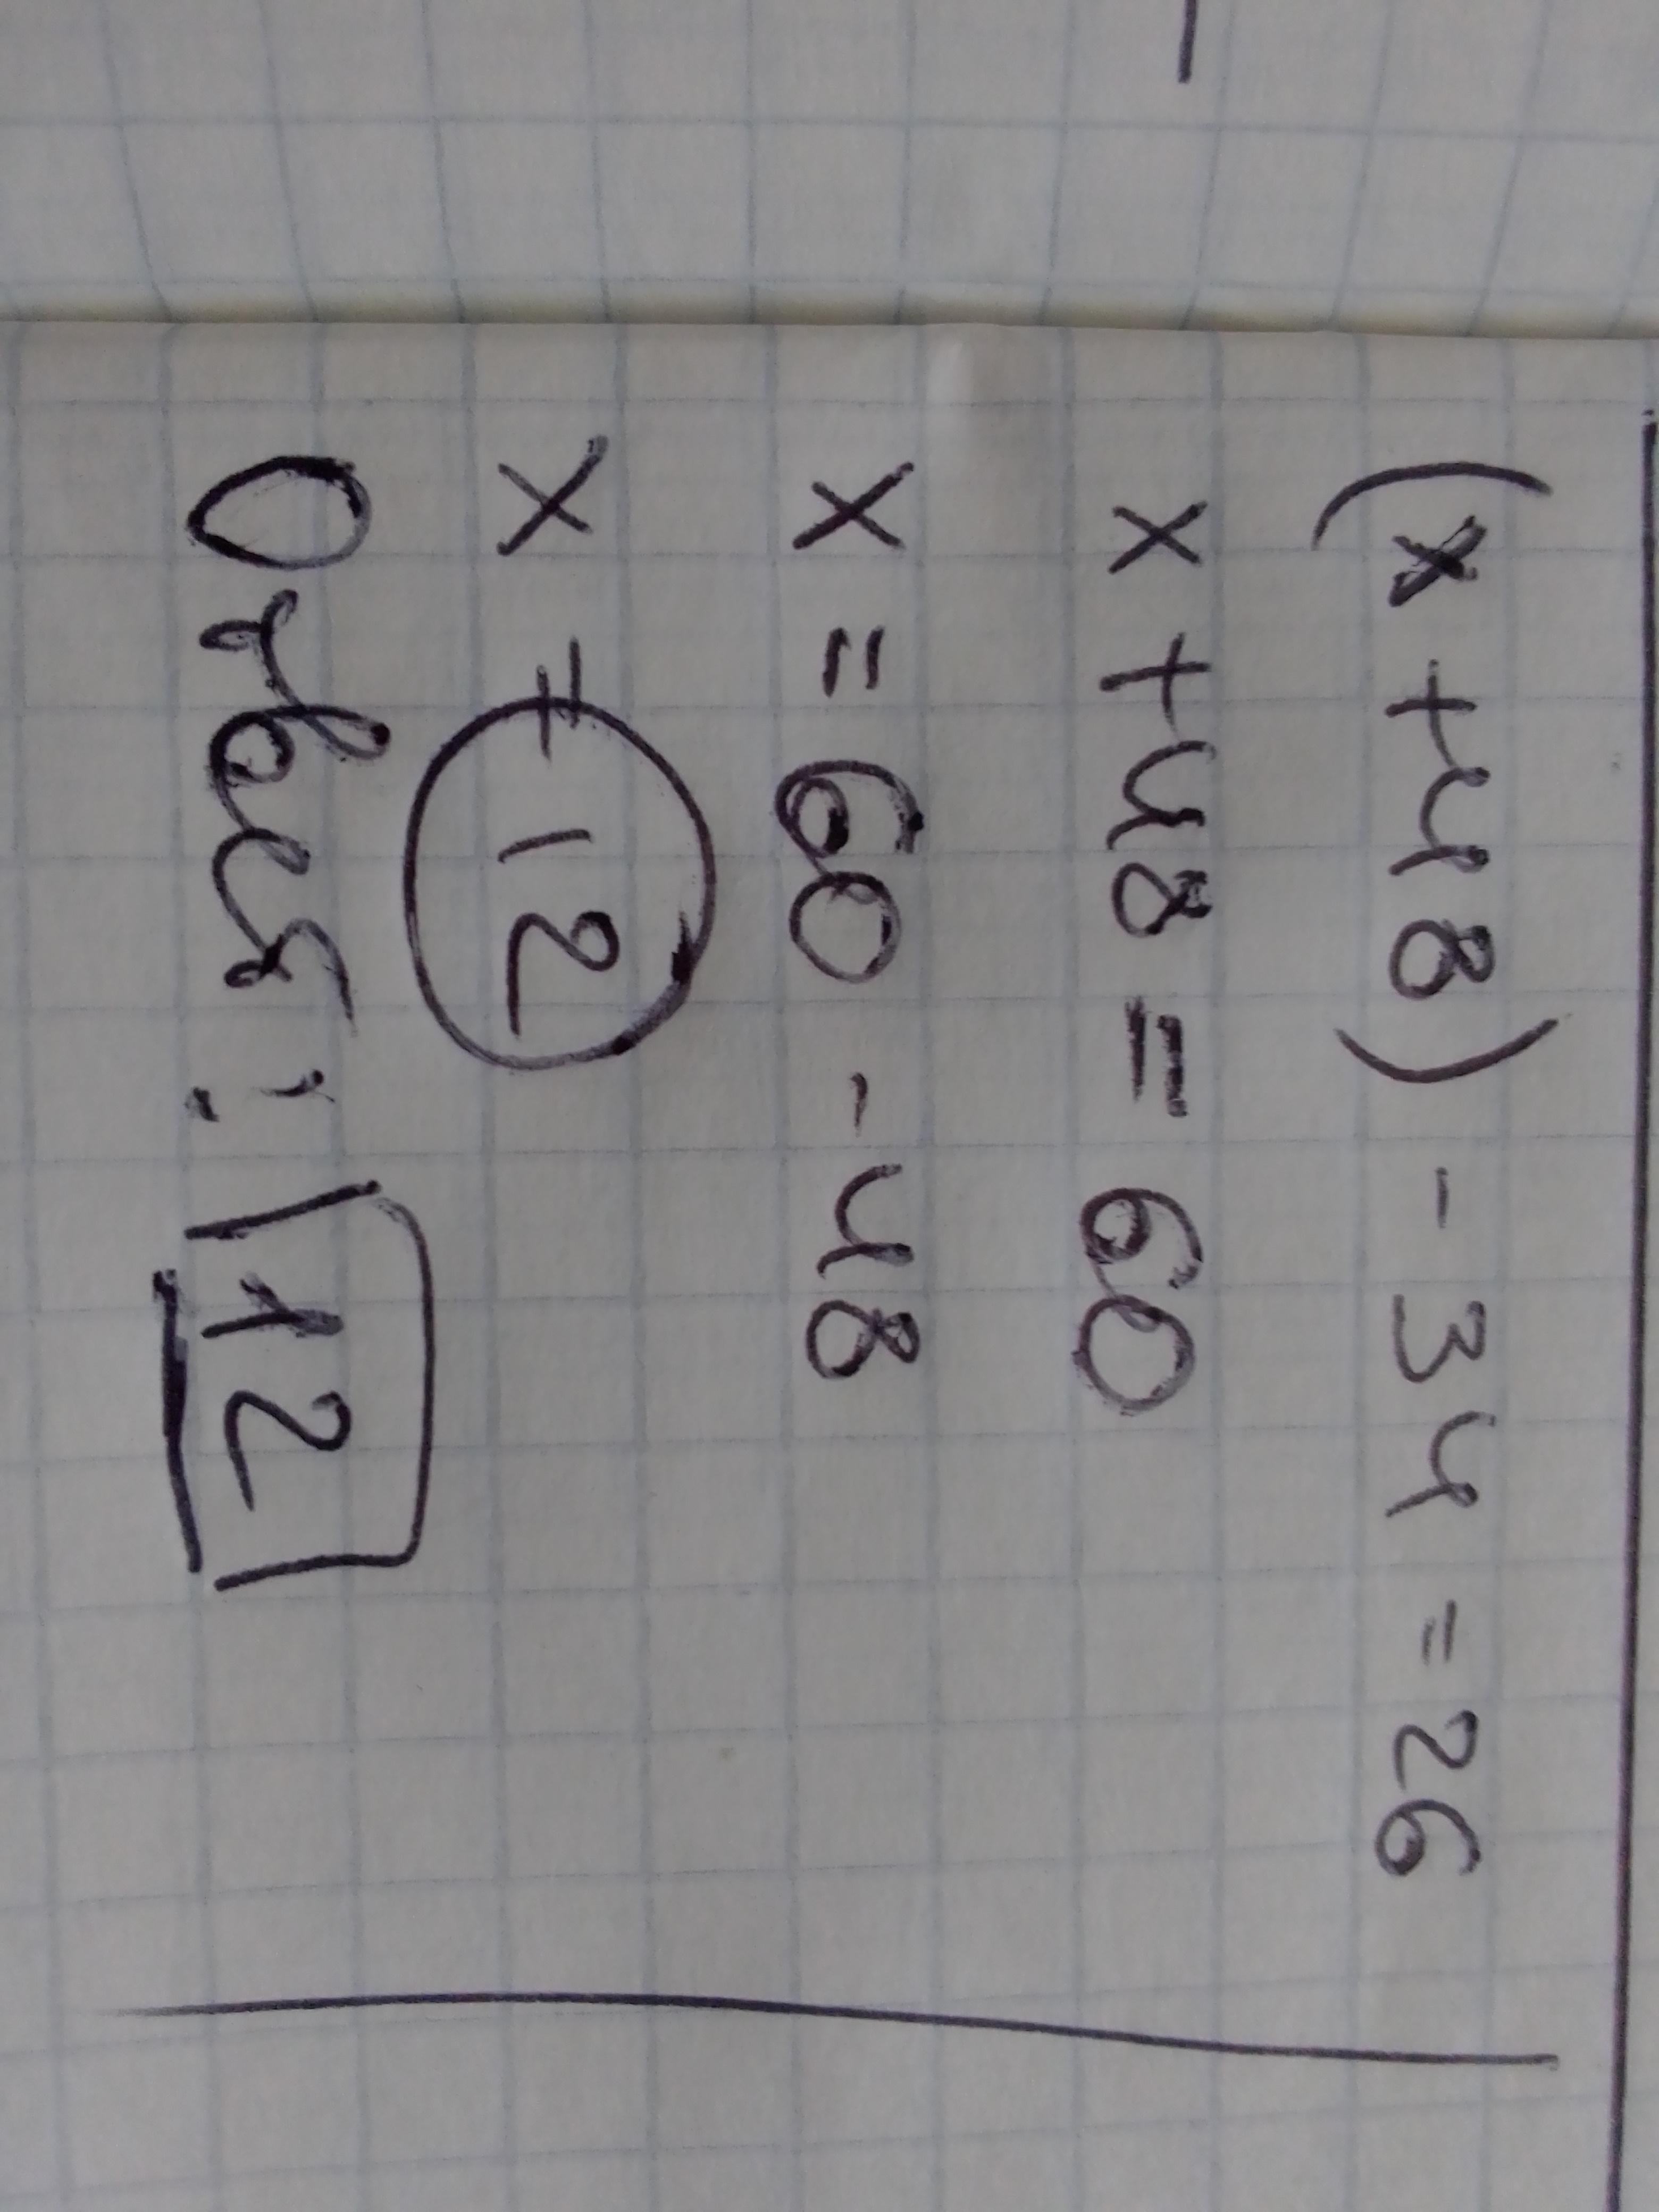 (x + 48) - 34 = 26
x + 48 = 60
x = 60 - 48
x = 12
Ответ: 12